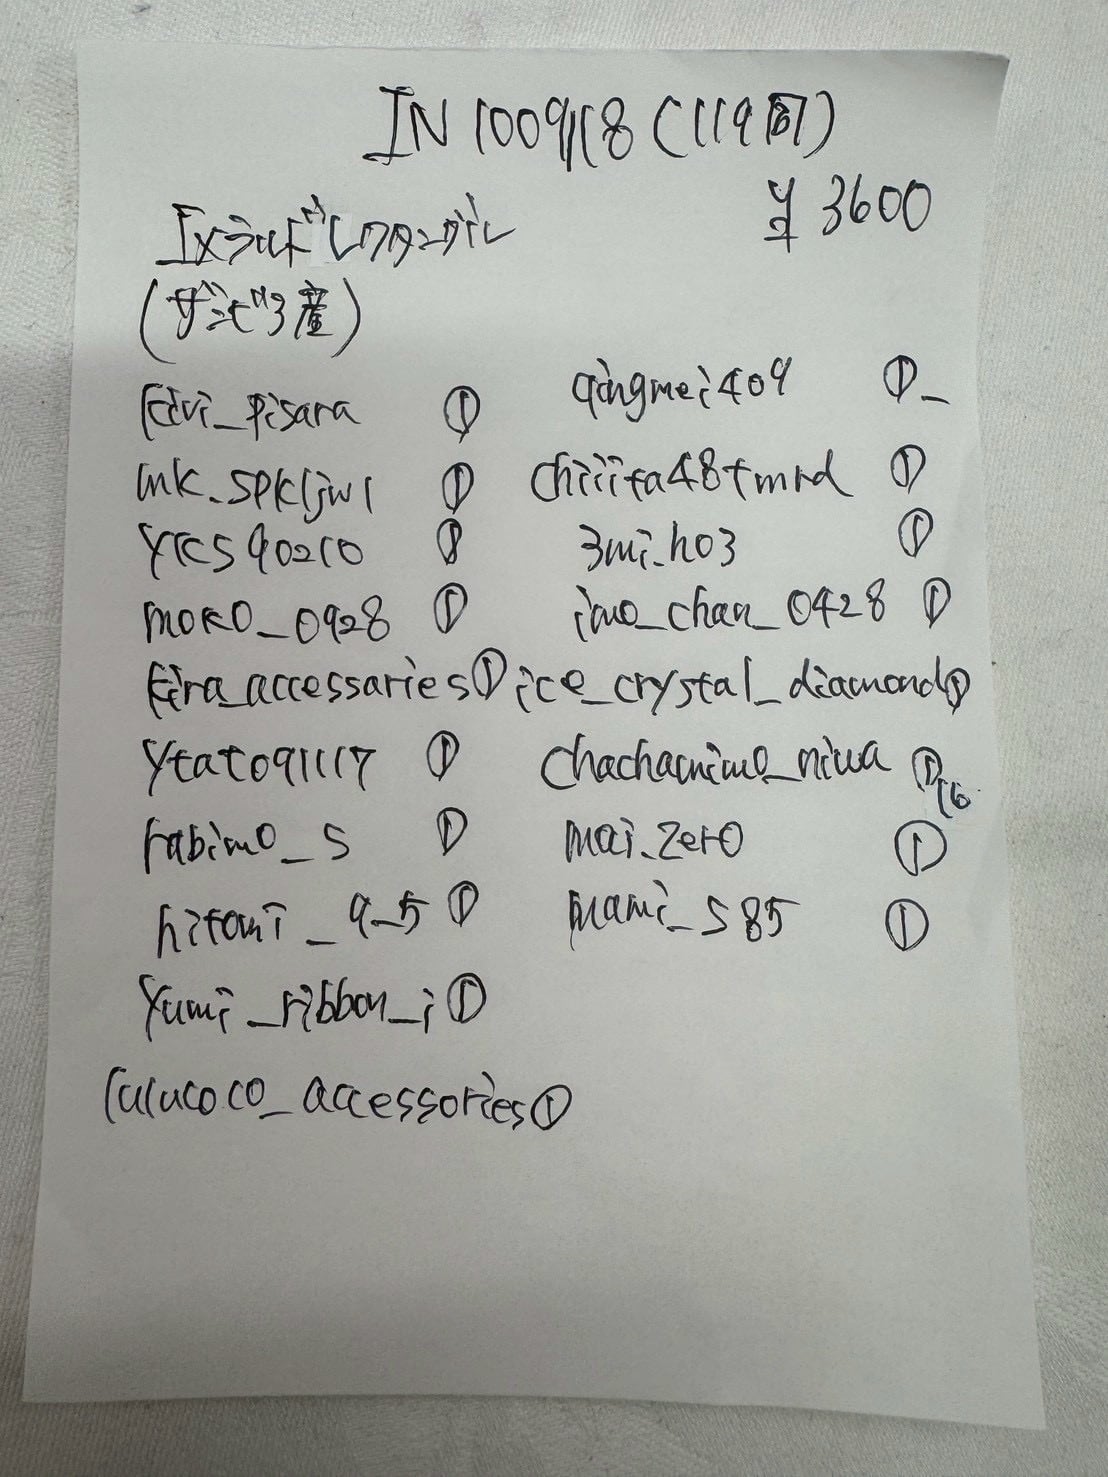 IN 100918 (119個)
¥3600
エメラルドレクタングル
(ザンビア産)
kivi_pisara ①
mk_spkljwl ①
yks90210 ①
moko_0928 ①
kira_accessaries ①
ytato91117 ①
rabimo_s ①
hitomi_9_5 ①
yumi_ribbon_i ①
lulucoco_accessories ①
qingmei409 ①_
chiiita48tmrd ①
3mi_h03 ①
imo_chan_0428 ①
ice_crystal_diamond ①
chachamimo_niwa ①
16
mai_zero ①
mami_s85 ①